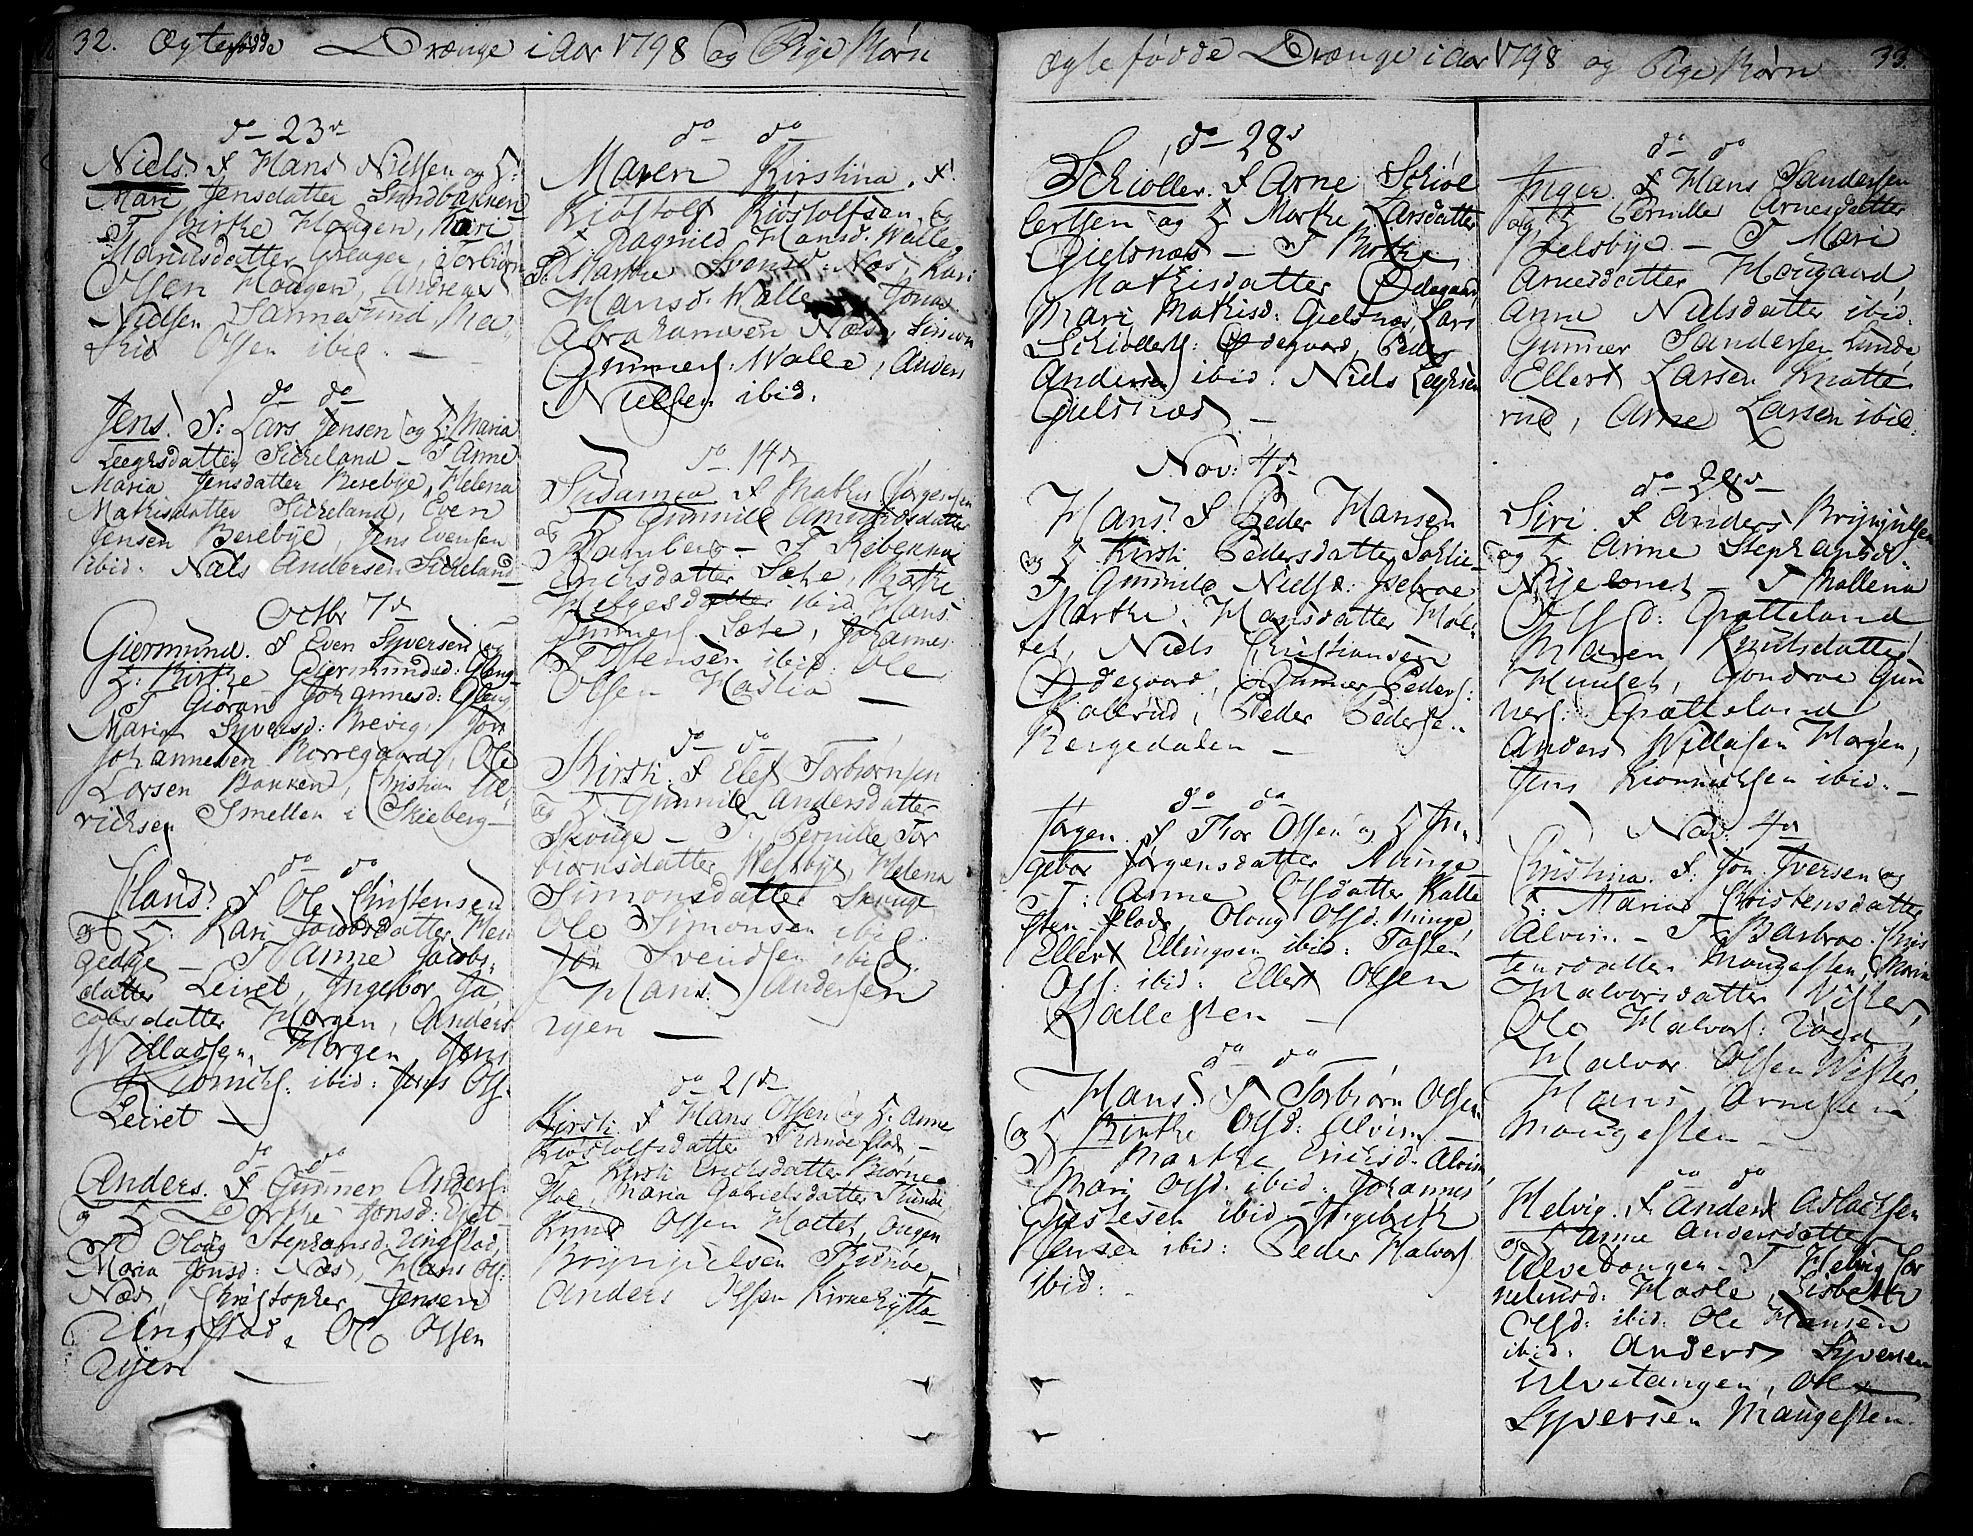 32. Ægtefødde Drænge i Aar 1798 og Pige Børn
do 23d
Niels. F Hans Nielsen og H:
Mari Jensdatter Sandbakken
T Birthe Hougen, Kari
Olsen Hougen, Andreas
Nielsen Sannesund, Ma-
Olsen ibid. —
do do
Jens. F: Lars Jensen og H: Maria
Leegesdatter Sikeland — T Anne
Maria Jensdatter Berebye, Helena
Mathisdatter Sikeland, Even
Jensen Berebye, Jens Evensen
ibid. Niels Andersen Sikeland
Octbr 7d
Giermund. F Even Syversen og
H: Birthe Giermundsd:
T Gioran Johannesd:
Maria Syversd: Brevig, Jon
Johannesen Borregaard, Ole
Larsen Bakken, Christian
richsen Smellen i Skieberg —
do do
Hans. F Ole Christensen
og H. Kari Jacobsdatter Wen
gedge — T Anne Jacobs-
datter Leiret, Ingebor Ja
cobsdatter Horgen, Anders
Willadsen Horgen Jens
ibid: Jens Ols.
Leiret —
do do
Anders. F Gunner Anders:
og H Dorthe Jonsd:
T Oloug Stephansd. Ungstad,
Maria Jonsd: Næs, Hans Ols:
Næs, Christopher Jensen
Ungstad, Ole Olsen
Ryen —
do do
Maren Kirstina. F
Kiøstolf Kiøstolfsen, og
H. Ragnild Hansd. Walle,
T. Marthe Svensd. Næs, Kari
Hansd. Walle, Jonas
Abrahamsen Næss, Simon
Gunners. Walle, Anders
Nielsen ibid.
do 14d
Susanna F Mathis Jørgensen
og H Gunnild Amundsdatter
Ramberg — T Rebekka
Erichsdatter Sæte, Marthe
Helgesdatter ibid, Hans
Gunners. Sæte, Johannes
Tostensen ibid. Ole
Olsen Haslia —
do do
Kirsti. F Elef Torbiørnsen
og H Gunnild Andersdatter
Skouge — T. Pernille Tor
biørnsdatter Westbye, Helena
Simonsdatter Skouge
Ole Simonsen ibid.
Jon Svendsen ibid.
Hans Andersen
Ryen —
do 21d
Kirsti F Hans Olsen og H. Anne
Kiøstolfsdatter Thundeflod, —
T Kirsti Erichsdatter Biørne-
Maria Gabrielsdatter Thune
Knud Olsen Holtet, Jørgen
Brynjulsen
Anders Olsen Kirkehytta —
Ægtefødde Drænge i Aar 1798 og Pige Børn 33.
do 28d
Schiøller. F Arne Schiøl
lersen og H Marthe Larsdatter
Gielsnæs — T Birthe
Mathisdatter Ødegaard
Mari Mathisd: Gielsnæs, Lars
Schiøllers: Ødegaard, Peder
Andersen ibid. Niels Leegesen
Gielsnæs —
Nov: 4d
Hans. F Peder Hansen
og H Kirsti Pedersdatter Soklie
T Gunnild Nielsd: Isebroe
Marthe Hansdatter Hol-
tet, Niels Christiansen
Ødegaard, Gunner Peders:
Kallerud, Peder Pedersen
Bergedalen —
do do
Jørgen. F Thor Olsen og H In-
gebor Jørgensdatter Minge
T: Anne Olsdatter Kalle
sten Flod, Oloug Olsd: Minge
Ellert Ellingsen ibid: Tosten
Ols: ibid: Ellert Olsen
Kallesten —
do do
Hans. F Torbiørn Olsen
og H Birthe Olsd: Alvim —
T Marthe Erichsd. Alvim
Mari Olsd: ibid: Johannes
Giestesen ibid — Ingebreth
Jensen ibid: Peder Halvors
ibid: —
do do
Inger. F Hans Sandersen
og H Pernille Arnesdatter
Delsbye — T Mari
Arnesdatter Hougaard,
Anne Nielsdatter ibid.
Gunner Sandersen Lunde
Ellert Larsen Knatte
rud, Arne Larsen ibid.
do 28d
Siri. F Anders Brynjulsen
og H Anne Stephansd.
Nye — T Mallena
Olsd: Grotteland
Maren Knudsdatter
Hunset, Gun
ners: Grotteland
Anders Willasen Horgen,
Jens ibid. —
Nov: 4d
Christina. F: Jon Iversen og
H: Maria Christensdatter
Alvim — T Barbroe Chris
tensdatter Maugesten, Maria
Halvorsdatter Wister,
Ole Halvors:
Halvor Olsen Wister,
Hans Arnesen
Maugesten —
do do
Helvig. F Anders Aslachsen
og H Anne Andersdatter
Ulvetangen — T Helvig Cor
neliusd: Hasle, Lisbeth
Olsd: ibid: Ole Hansen
ibid. Anders Syversen
Ulvetangen, Ole
Syversen Maugesten.